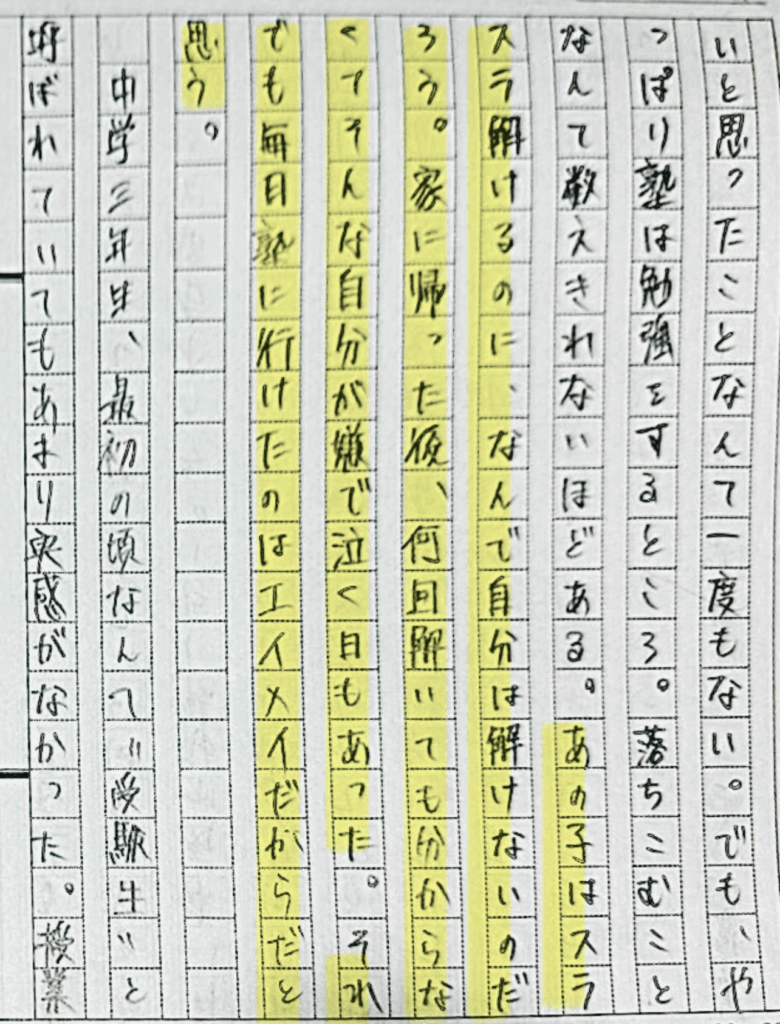 いと思ったことなんて一度もない。でも、や
っぱり塾は勉強をするところ。落ちこむこと
なんて数えきれないほどある。あの子はスラ
スラ解けるのに、なんで自分は解けないのだ
ろう。家に帰った後、何回解いても分からな
くてそんな自分が嫌で泣く日もあった。それ
でも毎日塾に行けたのはエイメイだからだと
思う。
中学三年生、最初の頃なんて〝受験生〟と
呼ばれていてもあまり実感がなかった。授業